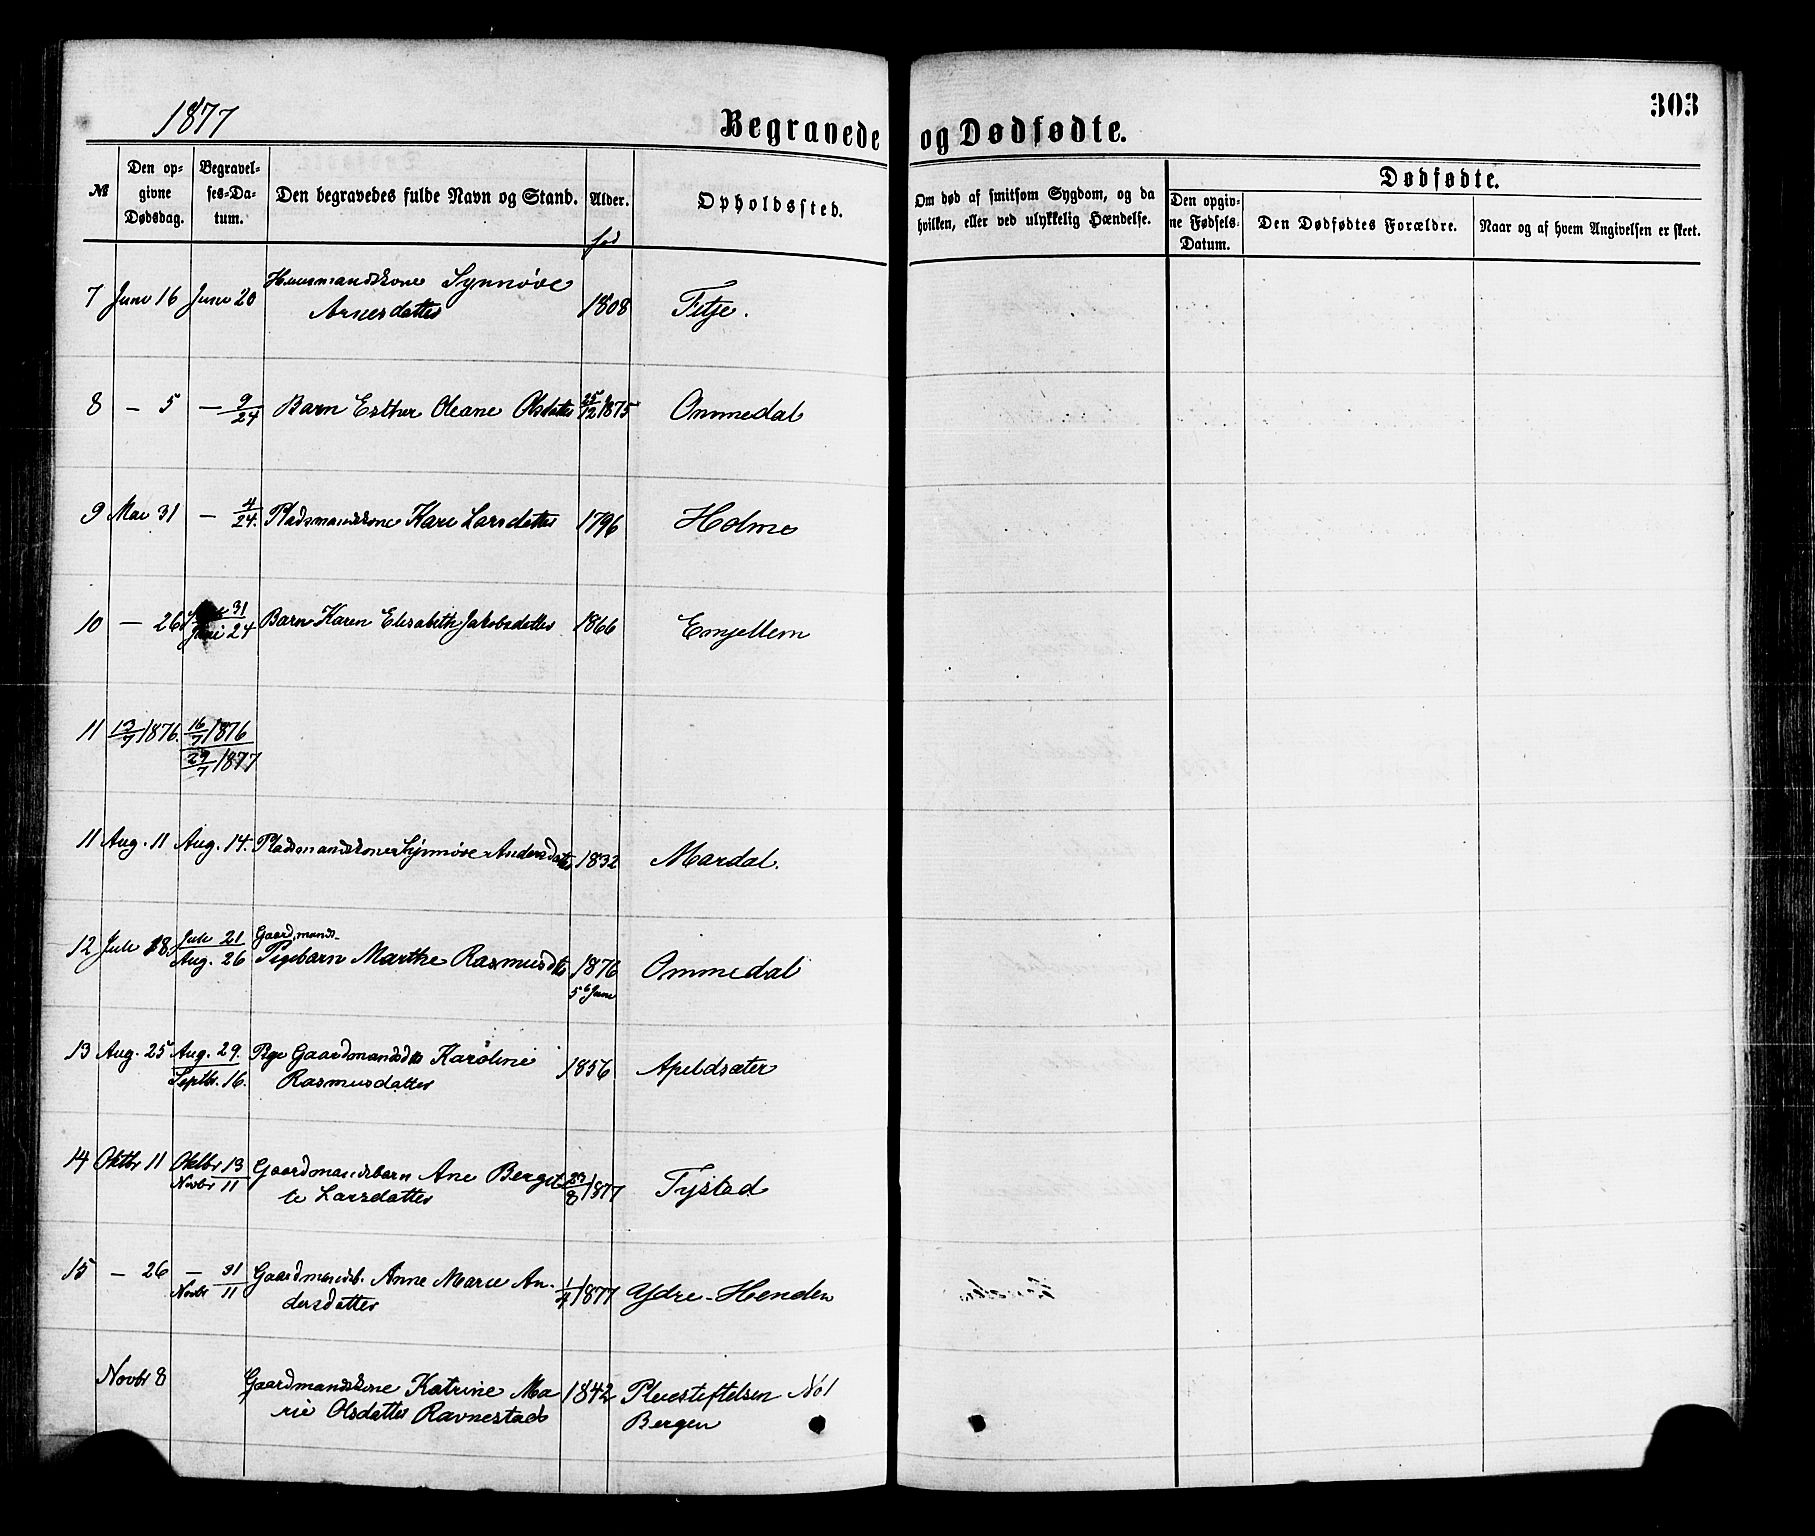 1877
Begravede og Dødfødte.
303
№
Den opgivne Dødsdag.
Begravelses-Datum.
Den begravedes fulde Navn og Stand.
Alder.
Opholdssted.
Om død af smitsom Sygdom, og da hvilken, eller ved ulykkelig Hændelse.
Dødfødte.
Den opgivne Fødsels-Datum.
Den Dødfødtes Forældre.
Naar og af hvem Angivelsen er skeet.
fød
7 Juni 16 Juni 20 Huusmandskone Synnøve
Arnesdatter 1808 Fitje.
8 — 5 — 9/24 Barn Esther Oleane Olsdatter 25/12 1875 Ommedal
9 Mai 31 — 4/24. Pladsmandskone Kari Larsdatter 1796 Holme
10 — 26 31/Juni 24 Barn Karen Elisabeth Jakobsdatter 1866 Emjellem
11 13/7 1876. 16/7 1876
29/7 1877
11 Aug. 11 Aug. 14. Pladsmandskone Synnøve Andersdatter 1832 Mardal.
12 Juli 18. Juli 21 Gaardmands-
Aug. 26 Pigebarn Marthe Rasmusdtr 1876 Ommedal
Juni
13 Aug. 25 Aug. 29. Pige Gaardmandsdtr Karoline
Septbr. 16. Rasmusdatter 1856 Apeldsæter
14 Oktbr 11 Oktbr 13 Gaardmandsbarn Ane Bergit-
Novbr 11 te Larsdatter 29/8 1877 Tystad
15 — 26 — 31 Gaardmandsb. Anne Marie An-
Novbr 11 dersdatter 1/4 1877 Ydre-Henden
Novbr 8 Gaardmandskone Katrine Ma- 1842 Pleiestiftelsen No 1
rie Olsdatter Ravnestad Bergen